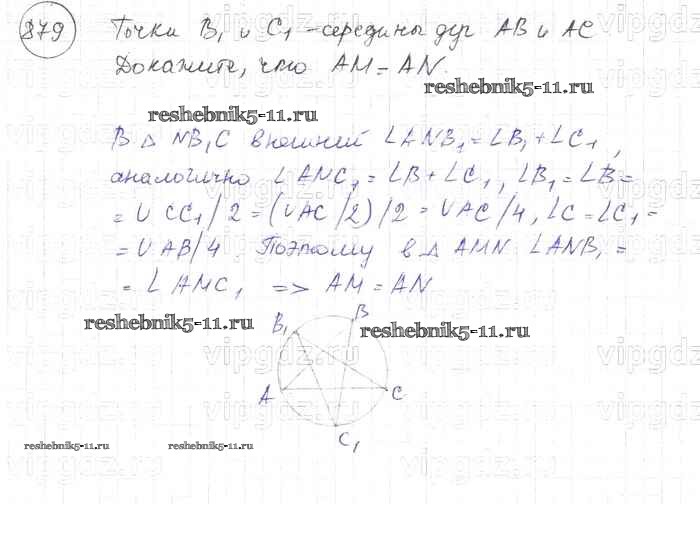 879
Точки B₁ и C₁ - середины дуг AB и AC
Докажите, что AM = AN.
reshebnik5-11.ru
reshebnik5-11.ru
В △ NB₁C внешний ∠ANB₁ = ∠B₁ + ∠C₁,
аналогично ∠ANC₁ = ∠B + ∠C₁, ∠B₁ = ∠B =
= ∪ CC₁/2 = (∪AC/2)/2 = ∪AC/4, ∠C = ∠C₁ =
= ∪ AB/4. Поэтому в △ AMN ∠ANB₁ =
= ∠AMC₁ => AM = AN
reshebnik5-11.ru
reshebnik5-11.ru
B₁
B
A
C
C₁
reshebnik5-11.ru
reshebnik5-11.ru